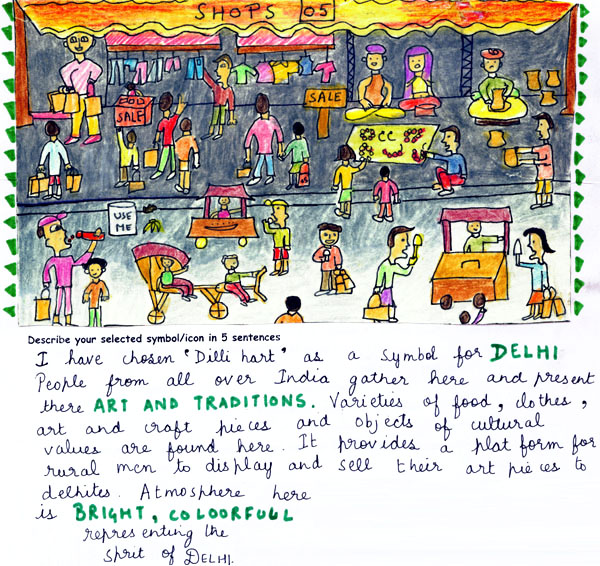 SHOPS 05
SALE
SALE
USE
ME
Describe your selected symbol/icon in 5 sentences
I have chosen "Dilli hart" as a symbol for DELHI
People from all over India gather here and present
there ART AND TRADITIONS. Varieties of food, clothes,
art and craft pieces and objects of cultural
values are found here. It provides a plat form for
rural men to display and sell their art pieces to
delhites. Atmosphere here
is BRIGHT, COLOORFULL
repres enting the
sprit of DELHI.